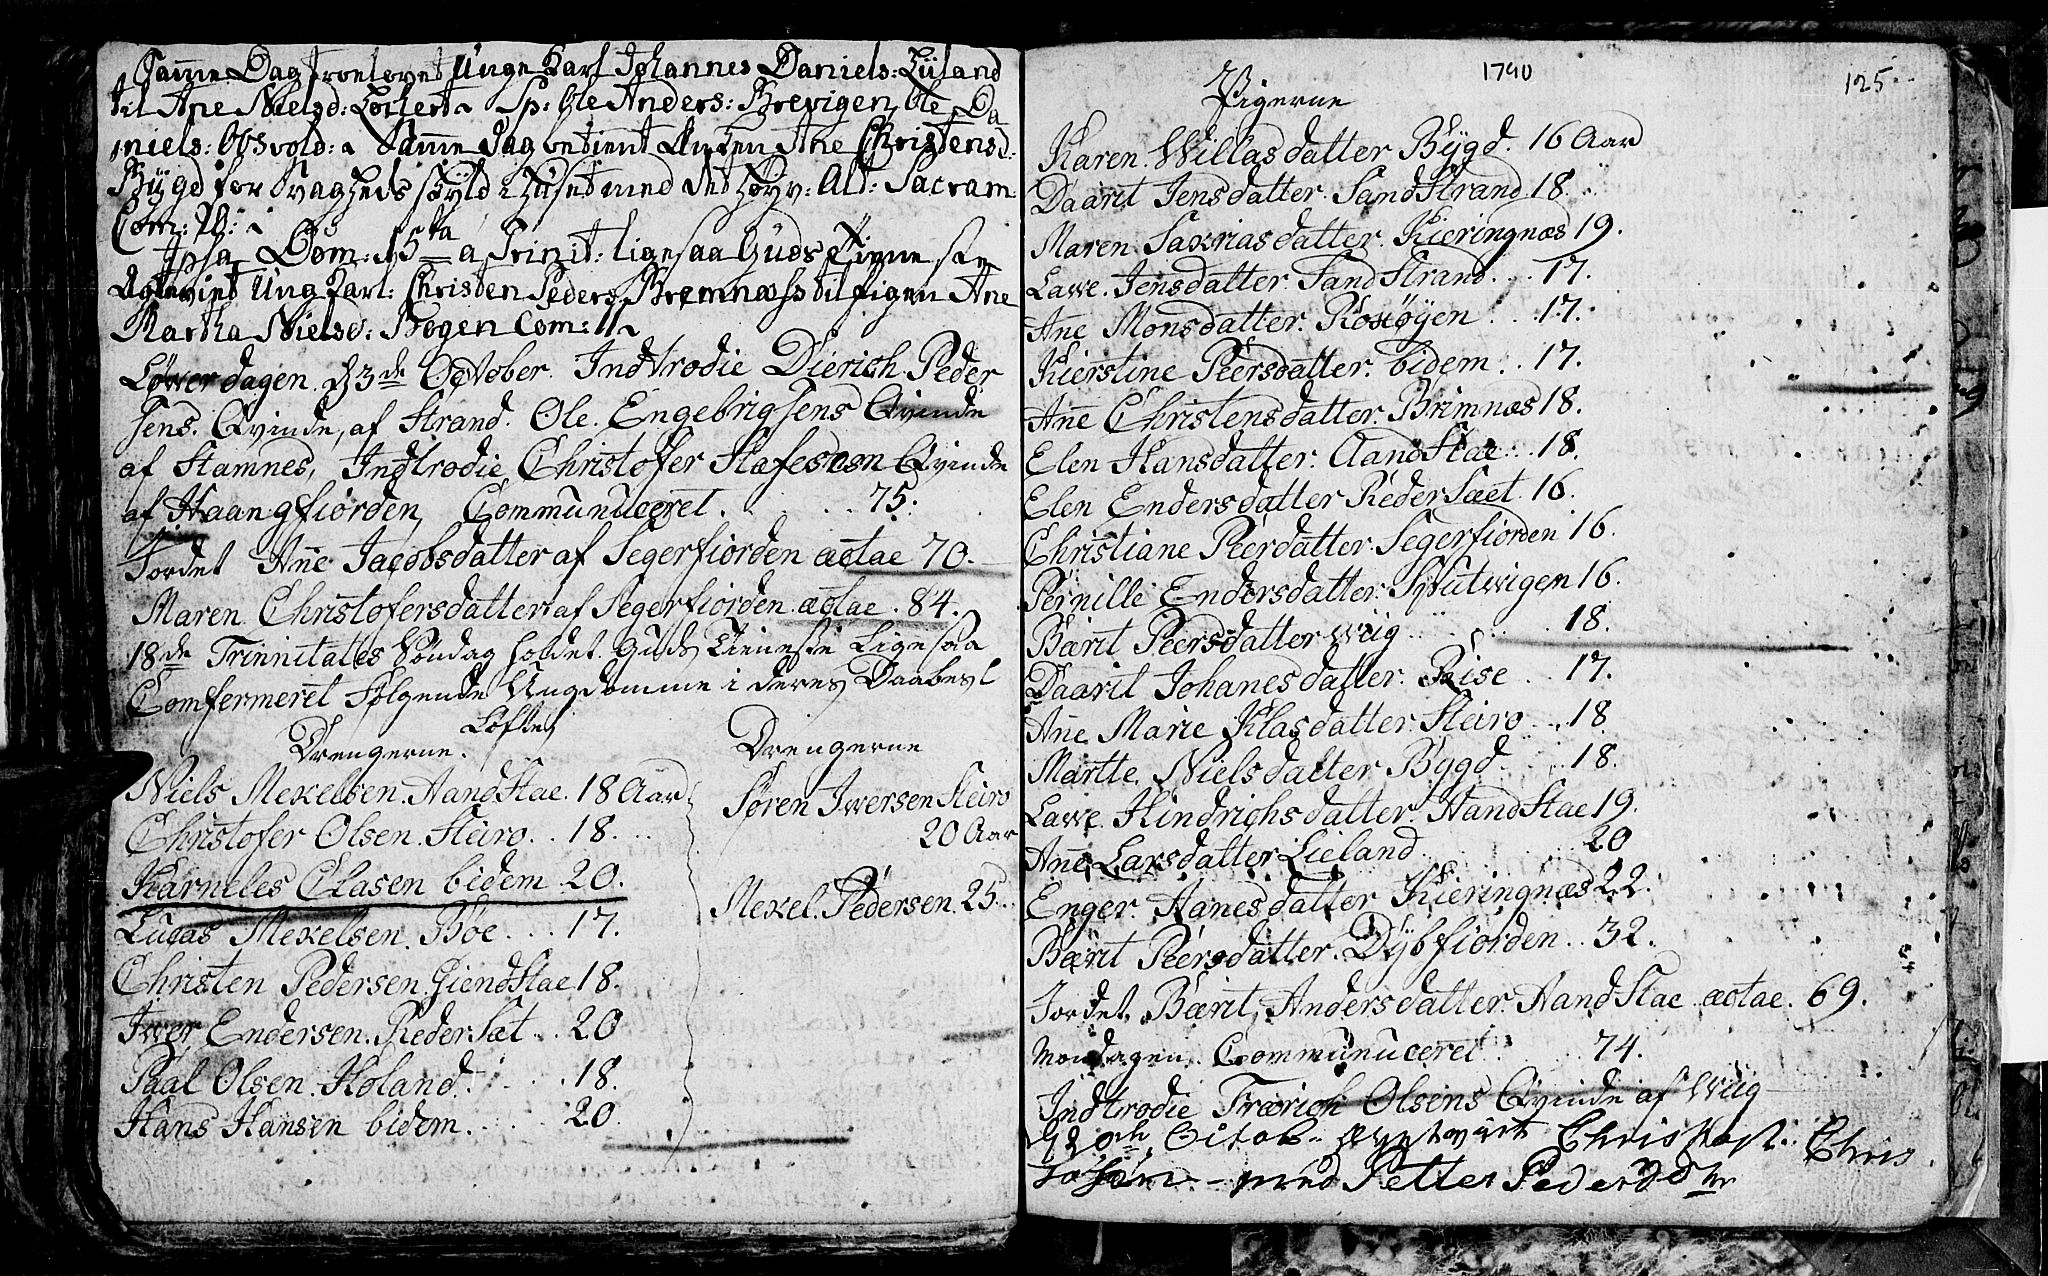 Samme Dag troelovet Unge Karl Johannes Daniels: Lüland
til Ane Nielsd: Sp: Ole Anders: Brevigen, Ole Da
niels: Samme dag betient Ane Christensd:
Bÿgd for Svagheds skÿld i Huset med det høÿv: Alt: Sacram:
Com:
Ipsa Dom: 15ta a Trinit: ligesaa Guds Tieneste
Ung Karl: Christen Peders: Bremnæss til Pigen Ane
Martha Nielsd: Bogen Com: 11
Løverdagen d 3de October. Indtrodie Dierich Peder
sens. Qvinde, af Strand. Ole. Engebrigsens Qvinde
af Stamnes, Indtrodie Christofer Qvinde
af Haangfiorden, Communuceret. . . . 75.
Jordet Ane Jacobsdatter af Segerfiorden æotae 70.
Maren Christofersdatter af Segerfiorden æotae. 84.
18de Trinnitates Søndag holdet Guds Tieneste Ligesaa
Comfermeret følgende Ungdomme i deres Daabes
Løfte
Drengerne.
Niels Mekelsen. HandStae. 18 Aar
Christofer Olsen. Steiro. . 18.
Karneles Clasen bidem 20.
Lucas Mekelsen. Böe . . . 17.
Christen Pedersen. GiendStae 18.
Iwer Endersen. Reder Sæt . . 20
Paal Olsen. Holand. . . . 18.
Hans Hansen bidem. . . . 20.
Drengerne
Søren Iwersen Steiro
20 Aar
Mekel. Pedersen. 25.
1790
125
Pigerne
Karen. Willasdatter Bÿgd. 16 Aar
Daarit Jensdatter. SandStrand 18.
Maren. Sakriasdatter. Kieringnæs 19.
Lawe. Jensdatter. SandStrand. . . 17.
Ane Monsdatter. . . 17.
Kierstine Peersdatter. bidem. . . 17.
Ane Christensdatter. Brimnæs 18.
Elen Hansdatter. . . 18.
Elen Endersdatter Reder Sæet. 16.
Christiane Peerdatter. Segerfiorden 16.
Pernille Endersdatter. 16
Bærit Peersdatter Wiig . . . 18.
Daarit Johanesdatter. Reise . . 17.
Ane Marie Klasdatter. Steiro . . 18
Martte. Nielsdatter Bÿgd . . 18.
Lawe. Hindrichsdatter. HandStae 19.
Ane Larsdatter Lieland . . . 20
Enger. Hanesdatter Kieringnæs 22.
Bærit Peersdatter. Dÿbfiorden . . 32.
Jordet. Bærit Andersdatter. HandStae æotae. 69.
Mondagen. Communuceret . . . 74.
Indtrodie Frærich Olsens Qvinde af Wiig
d 20de Octob. Christoph: Chris
med Petter Pedersdtr